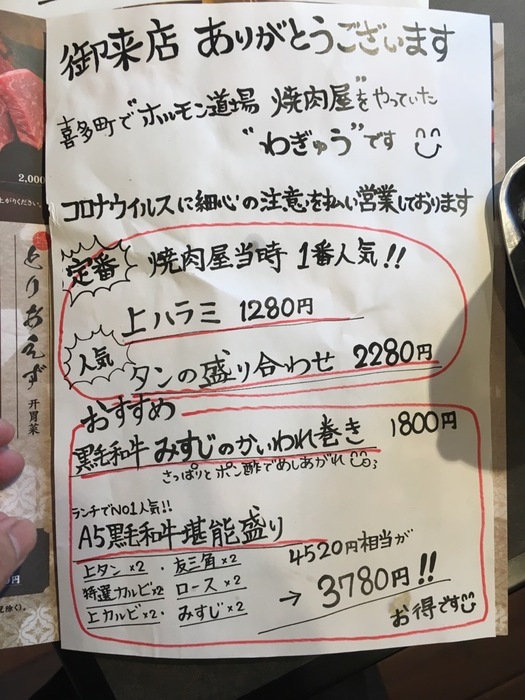 御来店 ありがとうございます
喜多町で"ホルモン道場 焼肉屋"をやっていた
"わぎゅう"です
コロナウイルスに細心の注意を払い営業しております
定番 焼肉屋当時 1番人気!!
上ハラミ 1280円
人気 タンの盛り合わせ 2280円
おすすめ
黒毛和牛 みすじのかいわれ巻き 1800円
さっぱりとポン酢でめしあがれ
ランチでNO1人気!!
A5黒毛和牛堪能盛り
上タン×2 ・ 友三角×2
特選カルビ×2 ロース×2
上カルビ×2 ・ みすじ×2
4520円相当が
→ 3780円!!
お得です
2,000
とりあえず
开胃菜